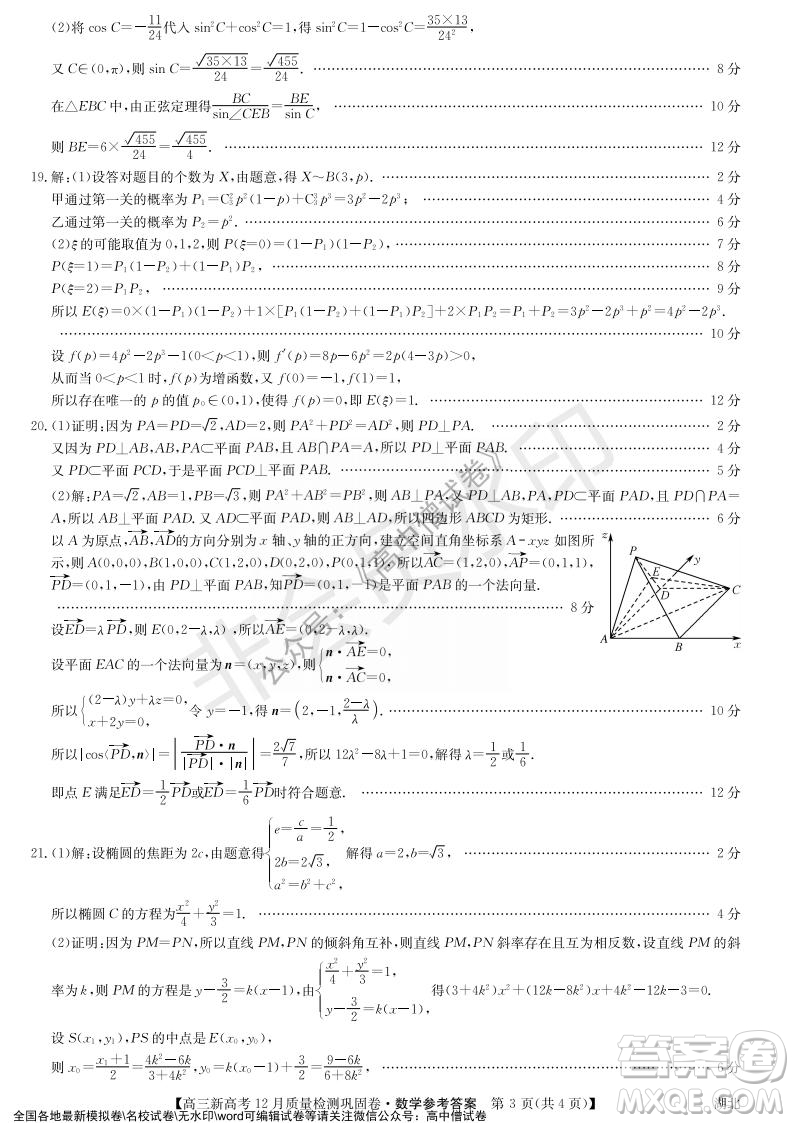 (2)将 cos C=-11/24代入 sin²C+cos²C=1,得 sin²C=1-cos²C=35×13/24²,
又 C∈(0,π),则 sin C=√(35×13)/24=√455/24. …… 8 分
在△EBC 中,由正弦定理得BC/sin∠CEB=BE/sin C, …… 10 分
则 BE=6×√455/24=√455/4. …… 12 分
19.解:(1)设答对题目的个数为 X,由题意,得 X~B(3,p). …… 2 分
甲通过第一关的概率为 P₁=C₃²p²(1-p)+C₃³p³=3p²-2p³, …… 4 分
乙通过第一关的概率为 P₂=p². …… 6 分
(2)ξ的可能取值为 0,1,2,则 P(ξ=0)=(1-P₁)(1-P₂), …… 7 分
P(ξ=1)=P₁(1-P₂)+(1-P₁)P₂, …… 8 分
P(ξ=2)=P₁P₂, …… 9 分
所以 E(ξ)=0×(1-P₁)(1-P₂)+1×[P₁(1-P₂)+(1-P₁)P₂]+2×P₁P₂=P₁+P₂=3p²-2p³+p²=4p²-2p³.
…… 10 分
设 f(p)=4p²-2p³-1(0<p<1),则 f′(p)=8p-6p²=2p(4-3p)>0,
从而当 0<p<1 时,f(p)为增函数,又 f(0)=-1,f(1)=1,
所以存在唯一的 p 的值 p₀∈(0,1),使得 f(p)=0,即 E(ξ)=1. …… 12 分
20.(1)证明:因为 PA=PD=√2,AD=2,则 PA²+PD²=AD²,则 PD⊥PA. …… 2 分
又因为 PD⊥AB,AB,PA⊂平面 PAB,且 AB∩PA=A,所以 PD⊥平面 PAB. …… 4 分
又 PD⊂平面 PCD,于是平面 PCD⊥平面 PAB. …… 5 分
(2)解:PA=√2,AB=1,PB=√3,则 PA²+AB²=PB²,则 AB⊥PA,又 PD⊥AB,PA,PD⊂平面 PAD,且 PD∩PA=
A,所以 AB⊥平面 PAD.又 AD⊂平面 PAD,则 AB⊥AD,所以四边形 ABCD 为矩形. …… 6 分
以 A 为原点,AB→,AD→的方向分别为 x 轴、y 轴的正方向,建立空间直角坐标系 A-xyz 如图所
示,则 A(0,0,0),B(1,0,0),C(1,2,0),D(0,2,0),P(0,1,1),所以AC→=(1,2,0),AP→=(0,1,1),
PD→=(0,1,-1),由 PD⊥平面 PAB,知PD→(0,1,-1)是平面 PAB 的一个法向量.
…… 8 分
z
P
E
y
D
C
A
B
x
设ED→=λPD→,则 E(0,2-λ,λ),所以AE→=(0,2-λ,λ),
设平面 EAC 的一个法向量为 n=(x,y,z),则{n·AE→=0, n·AC→=0,
所以{(2-λ)y+λz=0, x+2y=0, 令 y=-1,得 n=(2,-1,(2-λ)/λ). …… 10 分
所以|cos⟨PD→,n⟩|=|PD→·n/(|PD→|·|n|)|=2√7/7,所以 12λ²-8λ+1=0,解得 λ=1/2或1/6.
即点 E 满足ED→=1/2 PD→或ED→=1/6 PD→时符合题意. …… 12 分
21.(1)解:设椭圆的焦距为 2c,由题意得{e=c/a=1/2, 2b=2√3, a²=b²+c², 解得 a=2,b=√3, …… 2 分
所以椭圆 C 的方程为x²/4+y²/3=1. …… 4 分
(2)证明:因为 PM=PN,所以直线 PM,PN 的倾斜角互补,则直线 PM,PN 斜率存在且互为相反数,设直线 PM 的斜
率为 k,则 PM 的方程是 y-3/2=k(x-1),由{x²/4+y²/3=1, y-3/2=k(x-1), 得(3+4k²)x²+(12k-8k²)x+4k²-12k-3=0.
设 S(x₁,y₁),PS 的中点是 E(x₀,y₀),
则 x₀=(x₁+1)/2=(4k²-6k)/(3+4k²),y₀=k(x₀-1)+3/2=(9-6k)/(6+8k²). …… 6 分
【高三新高考 12 月质量检测巩固卷·数学参考答案 第 3 页(共 4 页)】 湖北
全国各地最新模拟卷\名校试卷\无水印\word可编辑试卷等请关注微信公众号:高中僧试卷
公众号:《高中僧试卷》
非会员水印
答案圈
MXQE.COM